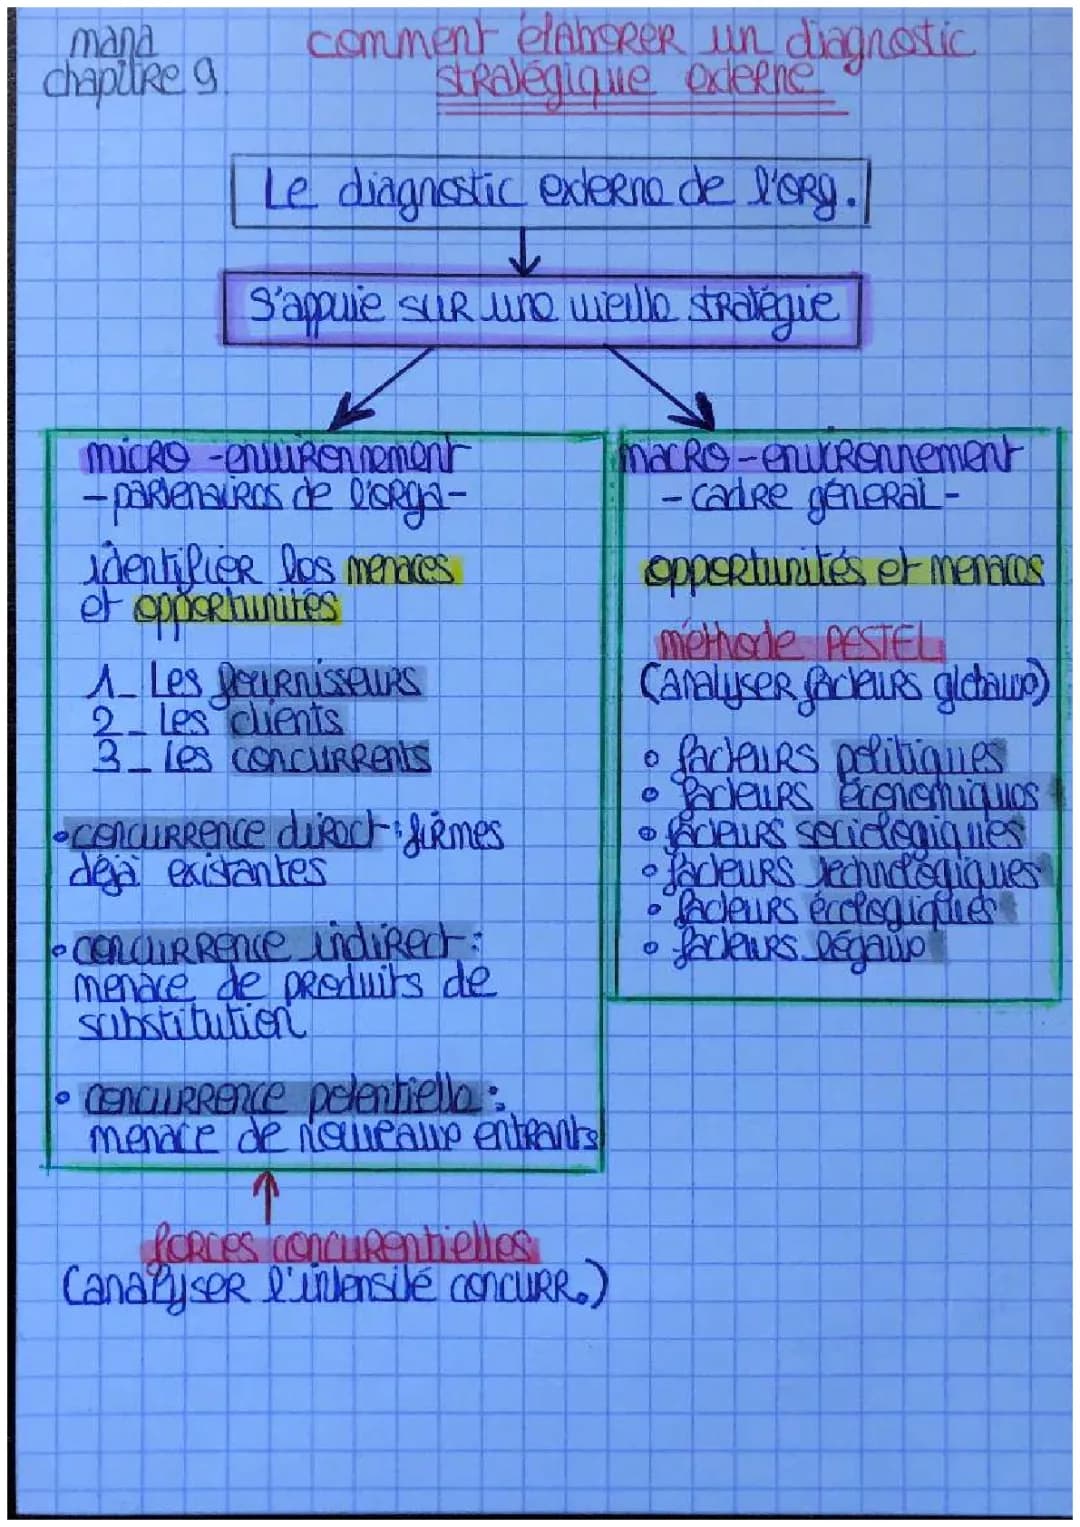 mana
chapitre 9.
comment élaborer un diagnostic
stratégique externe
Le diagnostic externe de l'org.
S'appuie sur une vieille stratégie
micro-environnement
- partenaires de l'orga -
identifier les menaces
et opportunités
1_ Les fournisseurs
2_ Les clients
3_ Les concurrents
• concurrence direct : firmes
déjà existantes
• concurrence indirect :
menace de produits de
substitution
• concurrence potentielle :
menace de nouveaux entrants
forces concurentielles
(analyser l'intensité concurr.)
macro-environnement
- cadre général -
opportunités et menaces
méthode PESTEL
(analyser facteurs globaux)
• facteurs politiques
• facteurs économiques
• facteurs sociologiques
• facteurs technologiques
• facteurs écologiques
• facteurs légaux